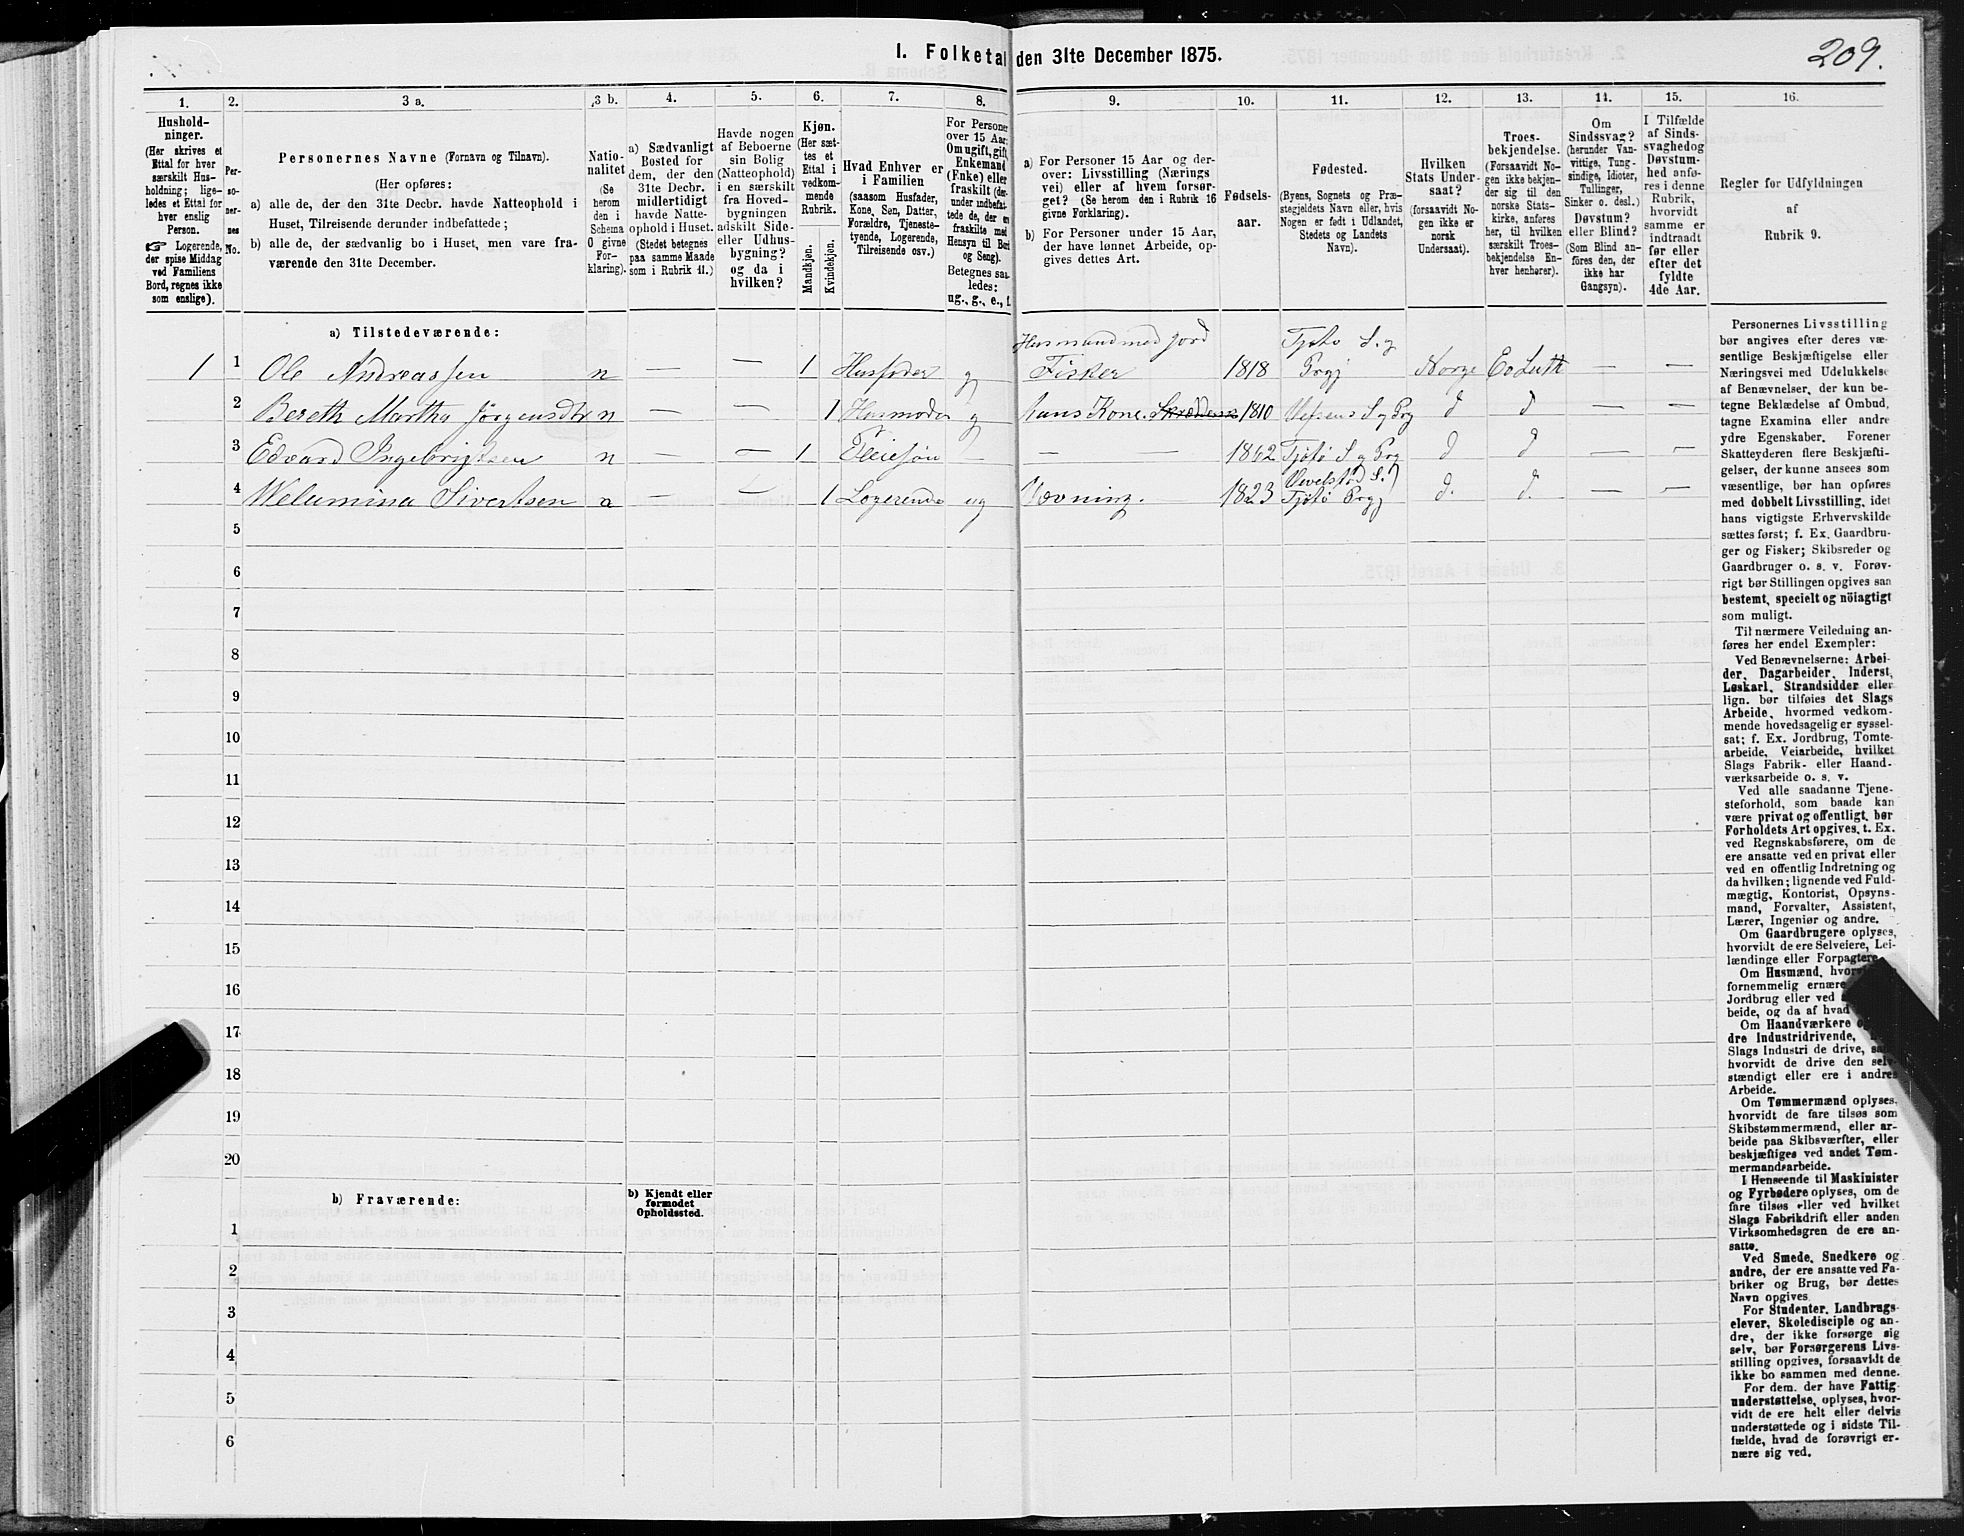 I. Folketal den 31te December 1875.
209.
1. 2. 3 a. 3 b. 4. 5. 6. 7. 8. 9. 10. 11. 12. 13. 14. 15. 16.
Hushold-
ninger.
(Her skrives et
Ettal for hver
særskilt Hus-
holdning; lige-
ledes et Ettal for
hver enslig
Person.
☞ Logerende,
der spise Middag
ved Familiens
Bord, regnes ikke
som enslige).
Per-
so-
ner-
nes
No.
Personernes Navne (Fornavn og Tilnavn).
(Her opføres:
a) alle de, der den 31te Decbr. havde Natteophold i
Huset, Tilreisende derunder indbefattede;
b) alle de, der sædvanlig bo i Huset, men vare fra-
værende den 31te December.
Natio-
nalitet
(Se
herom
den i
Schema
0 givne
For-
klaring).
a) Sædvanligt
Bosted for
dem, der den
31te Decbr.
midlertidigt
havde Natte-
ophold i Huset.
(Stedet betegnes
paa samme Maade
som i Rubrik 11.)
Havde nogen
af Beboerne
sin Bolig
(Natteophold)
i en særskilt
fra Hoved-
bygningen
adskilt Side-
eller Udhus-
bygning?
og da i
hvilken?
Kjøn.
(Her sæt-
tes et
Ettal i
vedkom-
mende
Rubrik.
Mandkjøn.
Kvindekjøn.
Hvad Enhver er
i Familien
(saasom Husfader,
Kone, Søn, Datter,
Forældre, Tjeneste-
tyende, Logerende,
Tilreisende osv.)
For Personer
over 15 Aar:
Om ugift, gift,
Enkemand
(Enke) eller
fraskilt (der-
under indbefat-
tede de, der ere
fraskilte med
Hensyn til Bord
og Seng).
Betegnes saa-
ledes:
ug., g., e., f.
a) For Personer 15 Aar og der-
over: Livsstilling (Nærings
vei) eller af hvem forsør-
get? (Se herom den i Rubrik 16
givne Forklaring).
b) For Personer under 15 Aar,
der have lønnet Arbeide, op-
gives dettes Art.
Fødsels-
aar.
Fødested.
(Byens, Sognets og Præ-
stegjeldets Navn eller, hvis
Nogen er født i Udlandet,
Stedets og Landets
Navn).
Hvilken
Stats Under-
saat?
(forsaavidt No-
gen ikke er
norsk
Undersaat).
Troes-
bekjendelse.
(Forsaavidt No-
gen ikke bekjen-
der sig til den
norske Stats-
kirke, anføres
her, til hvilken
særskilt Troes-
bekjendelse En-
hver henhører).
Om
Sindssvag?
(herunder Van-
vittige, Tung-
sindige, Idioter,
Tullinger,
Sinker o. desl.)
Døvstum?
eller Blind?
(Som Blind an-
føres den, der
ikke har
Gangsyn).
I Tilfælde
af Sinds-
svaghed og
Døvstum-
hed anfø-
res i denne
Rubrik,
hvorvidt
samme er
indtraadt
før eller
efter det
fyldte
4de Aar.
Regler for Udfyldningen
af
Rubrik 9.
a) Tilstedeværende:
Husmand med jord Tjøtø S. og
1 1 Ole Andreassen n — — 1 Husfader g Fisker 1818 Prgj Norge Ev Luth — —
2 Bereth Martha Jørgensdtr n — — 1 Husmoder g hans Kone. 1810 Vefsens S og Prg d d — —
3 Edvard Ingebrigtsen n — — 1 Pleiesøn — — 1862 Tjøtø S og Prg d d —
Vevelstad S.
4 Welumina Sivertsen n — — 1 Logerende ug Vævning. 1823 Tjøtø Prgj d. d. — —
5
6
7
8
9
10
11
12
13
14
15
16
17
18
19
20
b) Fraværende:
b) Kjendt eller
formodet
Opholdssted.
1
2
3
4
5
6
Personernes Livsstilling
bør angives efter deres væ-
sentlige Beskjæftigelse eller
Næringsvei med Udelukkelse
af Benævnelser, der kun be-
tegne Beklædelse af Ombud,
tagne Examina eller andre
ydre Egenskaber. Forener
Skatteyderen flere Beskjæfti-
gelser, der kunne ansees som
væsentlige, bør han opføres
med dobbelt Livsstilling, idet
hans vigtigste Erhvervskilde
sættes først; f. Ex. Gaardbru-
ger og Fisker; Skibsreder og
Gaardbruger o. s. v. Forøv-
rigt bør Stillingen opgives saa
bestemt, specielt og nöiagtigt
som muligt.
Til nærmere Veiledning an-
føres her endel Exempler:
Ved Benævnelserne: Arbei-
der, Dagarbeider, Inderst,
Løskarl, Strandsidder eller
lign. bør tilføies det Slags
Arbeide, hvormed vedkom-
mende hovedsagelig er syssel-
sat; f. Ex. Jordbrug, Tomte-
arbeide, Veiarbeide, hvilket
Slags Fabrik- eller Haand-
værksarbeide o. s. v.
Ved alle saadanne Tjene-
steforhold, som baade kan
være privat og offentligt, bør
Forholdets Art opgives, t. Ex.
ved Regnskabsførere, om de
ere ansatte ved en privat eller
ved en offentlig Indretning og
da hvilken; lignende ved Fuld-
mægtig, Kontorist, Opsyns-
mand, Forvalter, Assistent,
Lærer, Ingeniør og andre.
Om Gaardbrugere oplyses,
hvorvidt de ere Selveiere, Lei-
lændinge eller Forpagtere.
Om Husmænd,
fornemmelig ernære
Jordbrug eller ved
beide, og da af hvad
Om Haandværkere
dre Industridrivende,
Slags Industri de drive, samt
hvorvidt de drive den selv-
stændigt eller ere i andres
Arbeide.
Om Tømmermænd oplyses,
hvorvidt de fare tilsøs som
Skibstømmermænd, eller ar-
beide paa Skibsværfter, eller
beskjæftiges ved andet Tøm-
mermandsarbeide.
I Henseende til Maskinister
og Fyrbødere oplyses, om de
fare tilsøs eller ved hvilket
Slags Fabrikdrift eller anden
Virksomhedsgren de ere an-
satte.
Ved Smede, Snedkere og
andre, der ere ansatte ved Fa-
briker og Brug, bør dettes
Navn opgives.
For Studenter, Landbrugs-
elever, Skoledisciple og an-
dre, der ikke forsørge sig
selv, bør Forsørgerens Livs-
stilling opgives, forsaavidt de
ikke bo sammen med denne.
For dem, der have Fattig-
understøttelse, oplyses, hvor-
vidt de ere helt eller delvis
understøttede og i sidste Til-
fælde, hvad de forøvrigt er-
nære sig ved.